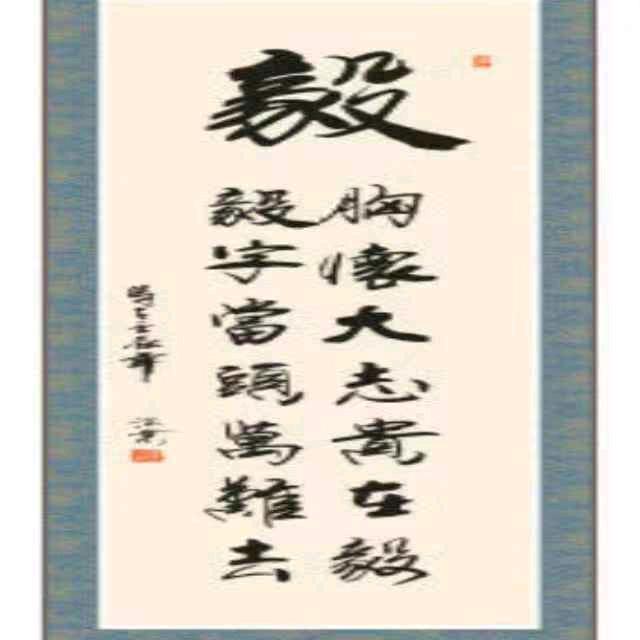 毅
胸懷大志貴在毅
毅字當頭萬難去